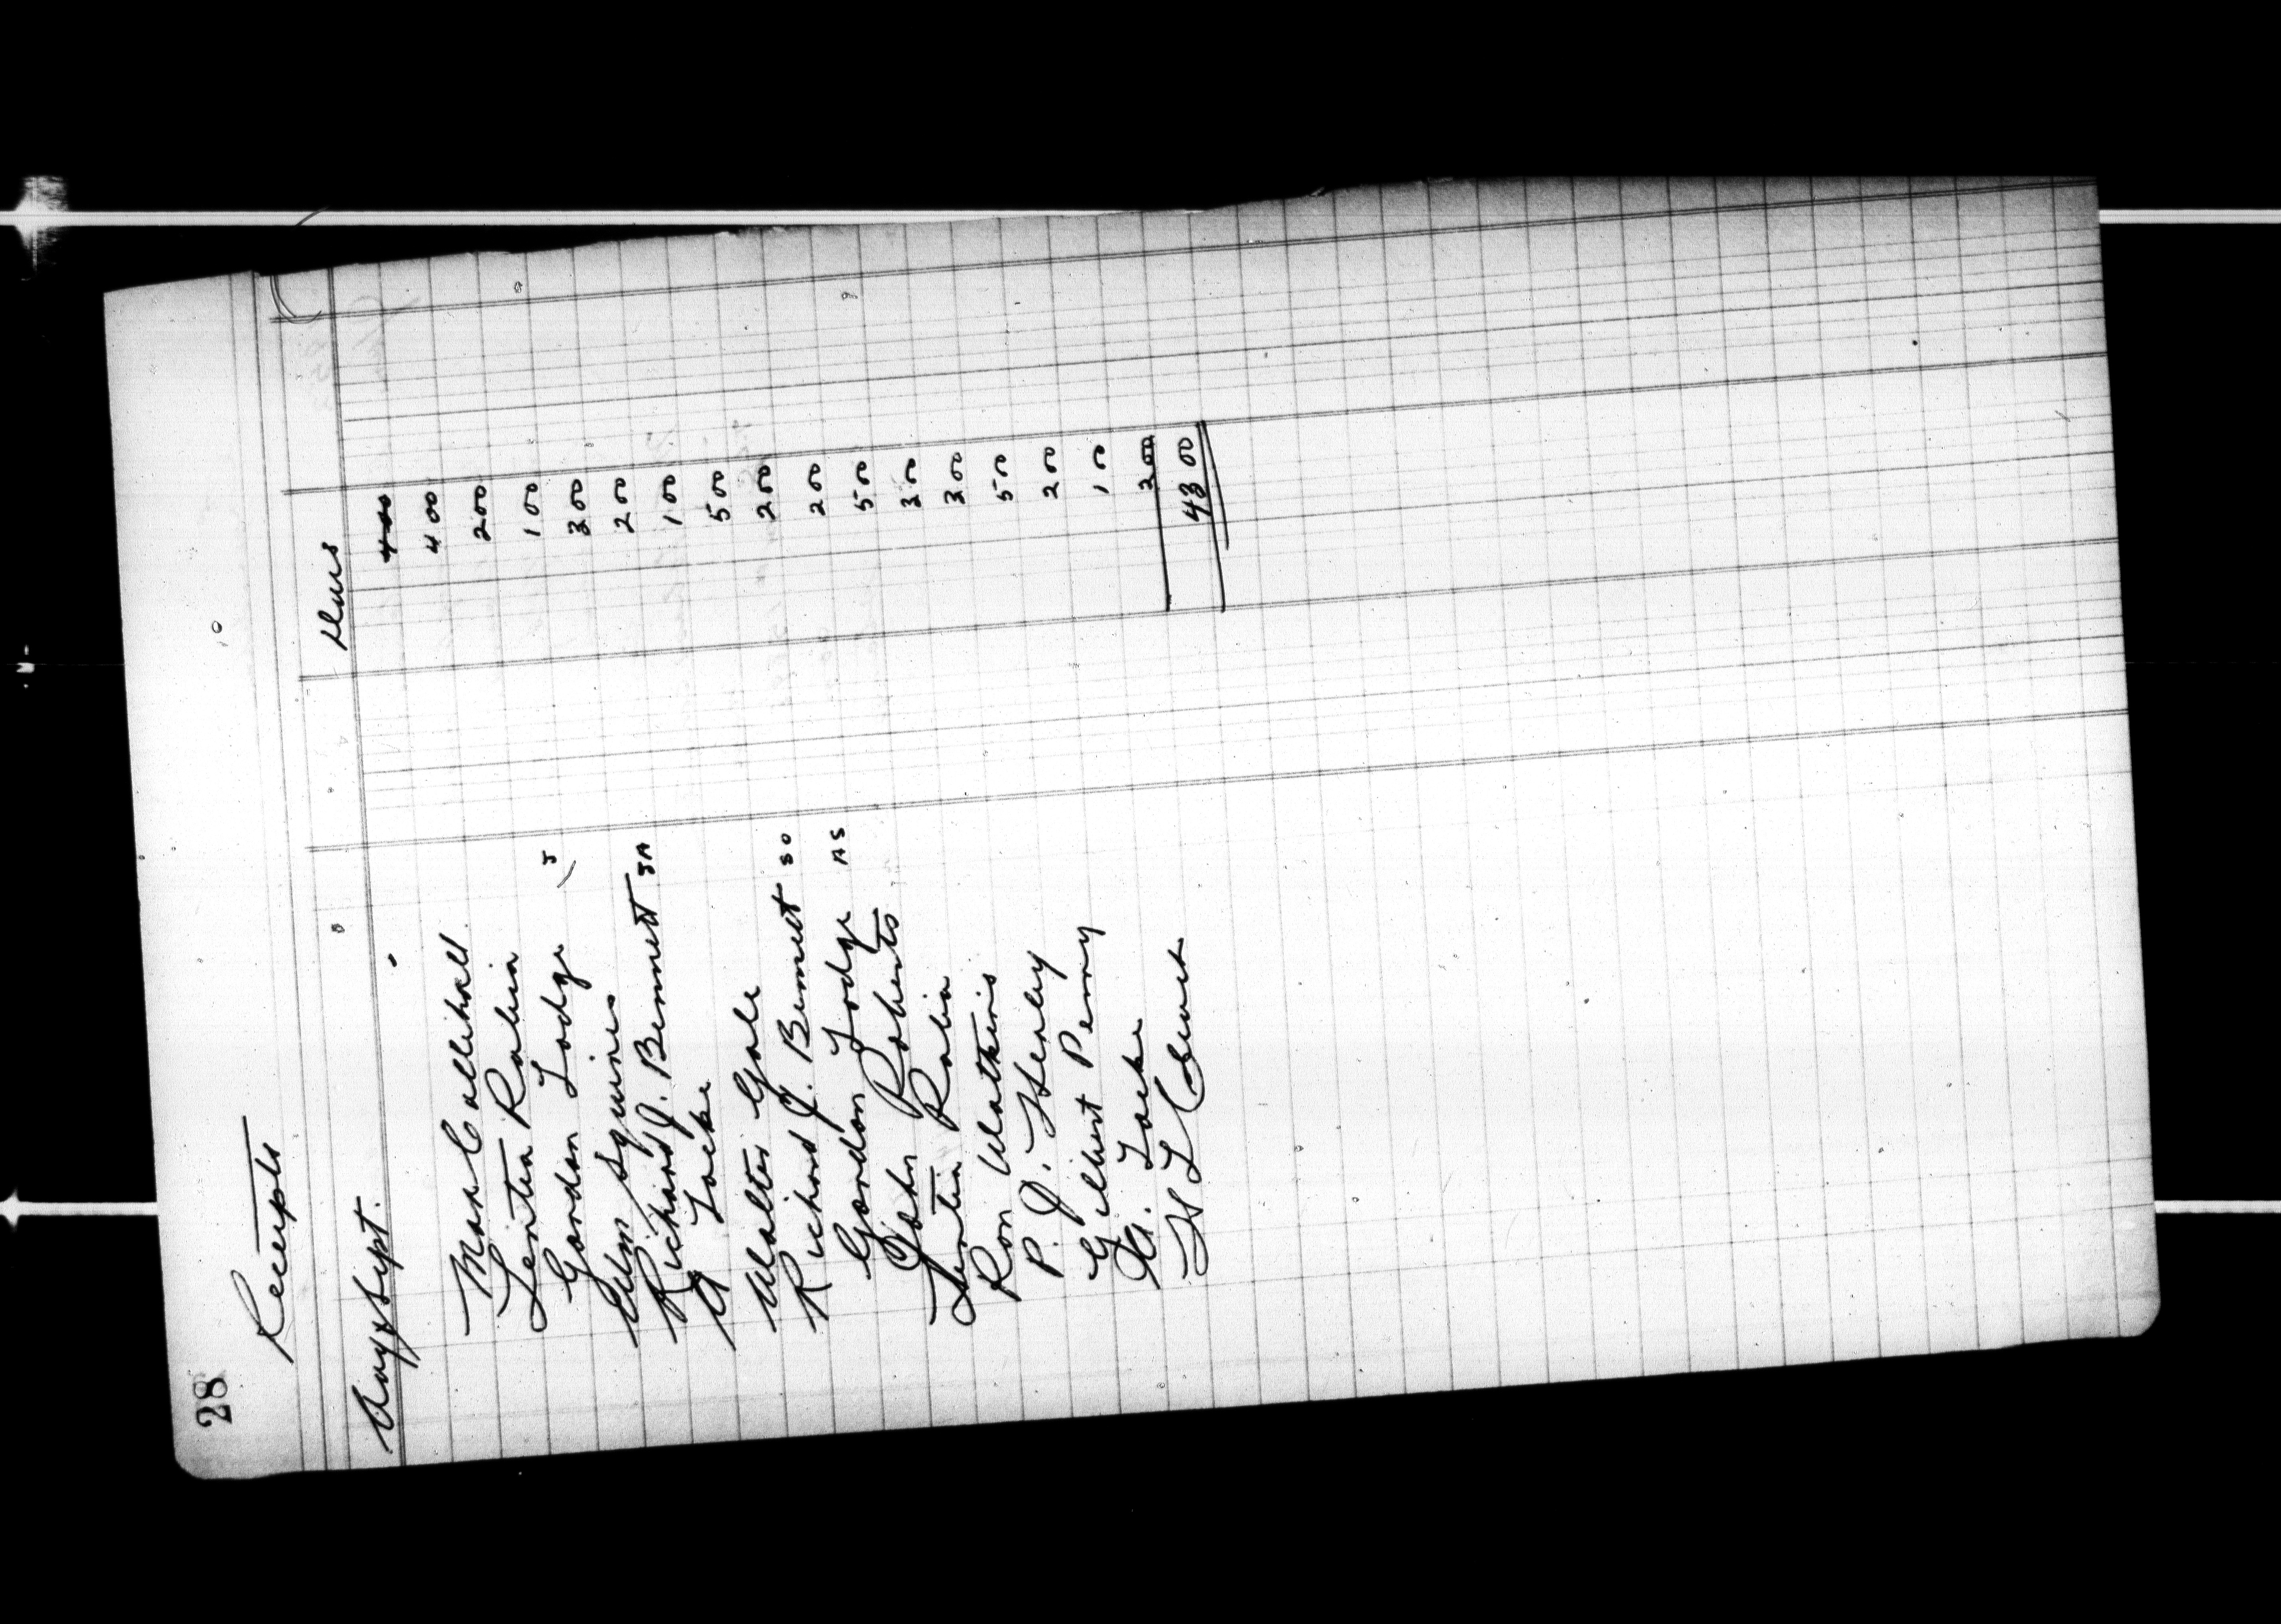 28
Receipts
Aug & Sept. Dues
4 00
Max Callihall 4 00
Rabin 2 00
Gordon Lodge J 1 00
Squires 3 00
Richard J. Bennett JA 2 00
A Locke 1 00
Walter Gale 5 00
Richard J. Bennett SO 2 00
Gordon Lodge AS 2 00
John Roberts 5 00
Rabin 3 00
Ron Watkins 3 00
P. J. Henley 5 00
Gilbert Penny 2 00
A. Locke 1 00
H L 2 00
43 00